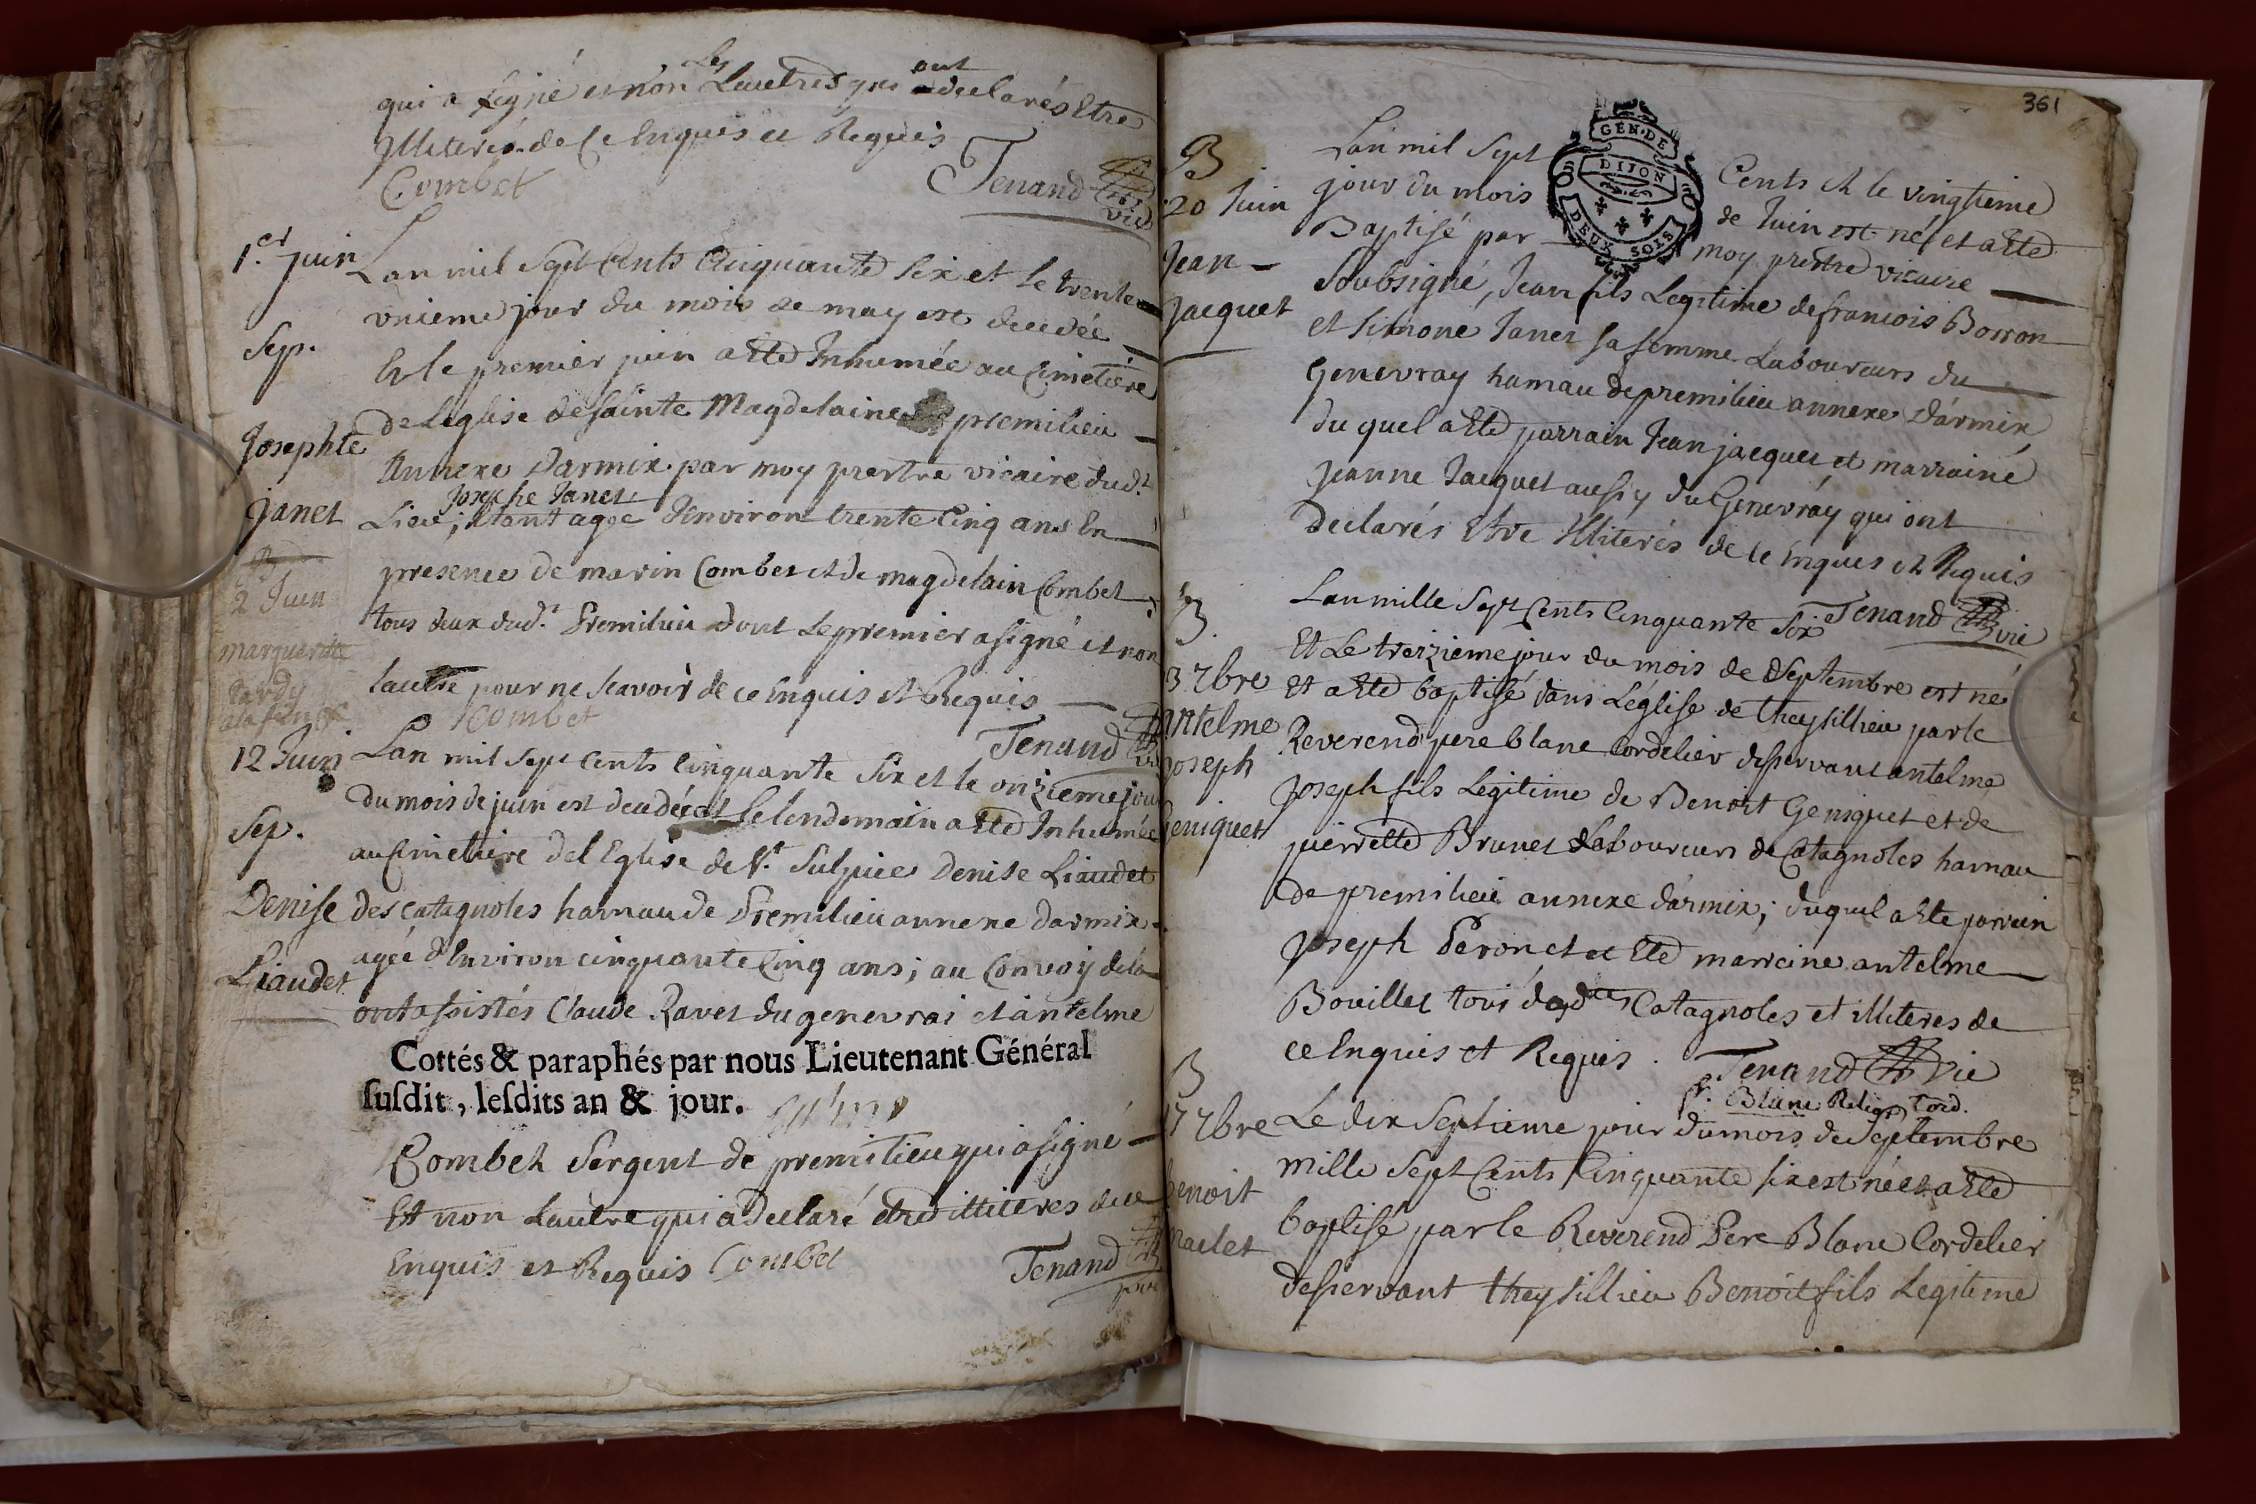 qui a signé et non Les Lautres qui ont declarés Etre
Illiterés de Ce Enquis et Requis
Combet
Tenand vic
1.er juin
Sep.
Josephte
Janet
Lan mil Sept Cents Cinquante Six et le trente
unieme jour du mois de may est decedée
Et le premier juin a Eté Inhumée au Cimetière
de Leglise de sainte Magdelaine premilieu
Annexe Darmix par moy prestre vicaire dud.t
Josephe Janet
Lieu, Etant agée denviron trente Cinq ans En
presence de marin Combet et de magdelain Combet
tous deux dud.t Premilieu dont le premier a signé et non
lautre pour ne scavoir de ce Enquis et Requis
Combet
Tenand
B
2 Juin
marguerite
tardy
a la fin
12 Juin
Sep.
Denise
Liaudet
Lan mil Sept Cents Cinquante Six et le onzieme jour
du mois de juin est decedée et le lendemain a Eté Inhumée
au Cimetiere del Eglise de St. Sulpice Denise Liaudet
des catagnoles hamau de Premilieu annexe darmix
agée d'Environ cinquante Cinq ans; au Convoy dela
ont assistés Claude Ravet du genevrai et antelme
Cottés & paraphés par nous Lieutenant Général
ſuſdit, leſdits an & jour.
Combet Sergent de premilieu qui a signé
Et non Lautre qui a declaré etre illiteres de ce
Enquis et Requis Combet
Tenand
361
GEN. DE
DIJON
DEUX SOLS
B
20 Juin
Jean
Jacquet
Lan mil Sept Cents et le vingtieme
jour du mois de Juin est né et a Eté
Baptisé par moy prestre vicaire
Soubsigné, Jean fils Legitime de francois Borron
et simone Janet sa femme Laboureurs du
Genevray hamau de premilieu annexe D'armix
du quel a Eté parrain Jean jacquet et marraine
Jeanne Jacquet aussy du Genevráy qui ont
Declarés Etre Illiterés de ce Enquis et Requis
Tenand vic
B.
13 7bre
Antelme
joseph
Geniquet
Lan mille Sept Cents Cinquante Six
Et Le treizieme jour du mois de Septembre est né
Et a Eté baptisé dans L'église de Theysillieu par le
Reverend pere blanc Cordelier desservant antelme
Joseph fils Legitime de Benoit Geniquet et de
pierrette Brunet Laboureurs de Catagnoles hamau
de premilieu annexe d'armix; du quel a Eté parrein
Joseph Peronet et Eté marreine antelme
Bouillet tous desd.tes Catagnoles et illiteres de
ce Enquis et Requis.
Tenand vic
f. Blanc Relig. Cord.
B
17 7bre
benoit
Le dix Septieme jour du mois de Septembre
Mille Sept Cents Cinquante six est né et a Eté
baptisé par le Reverend Pere Blanc Cordelier
desservant theysillieu Benoit fils Legitime